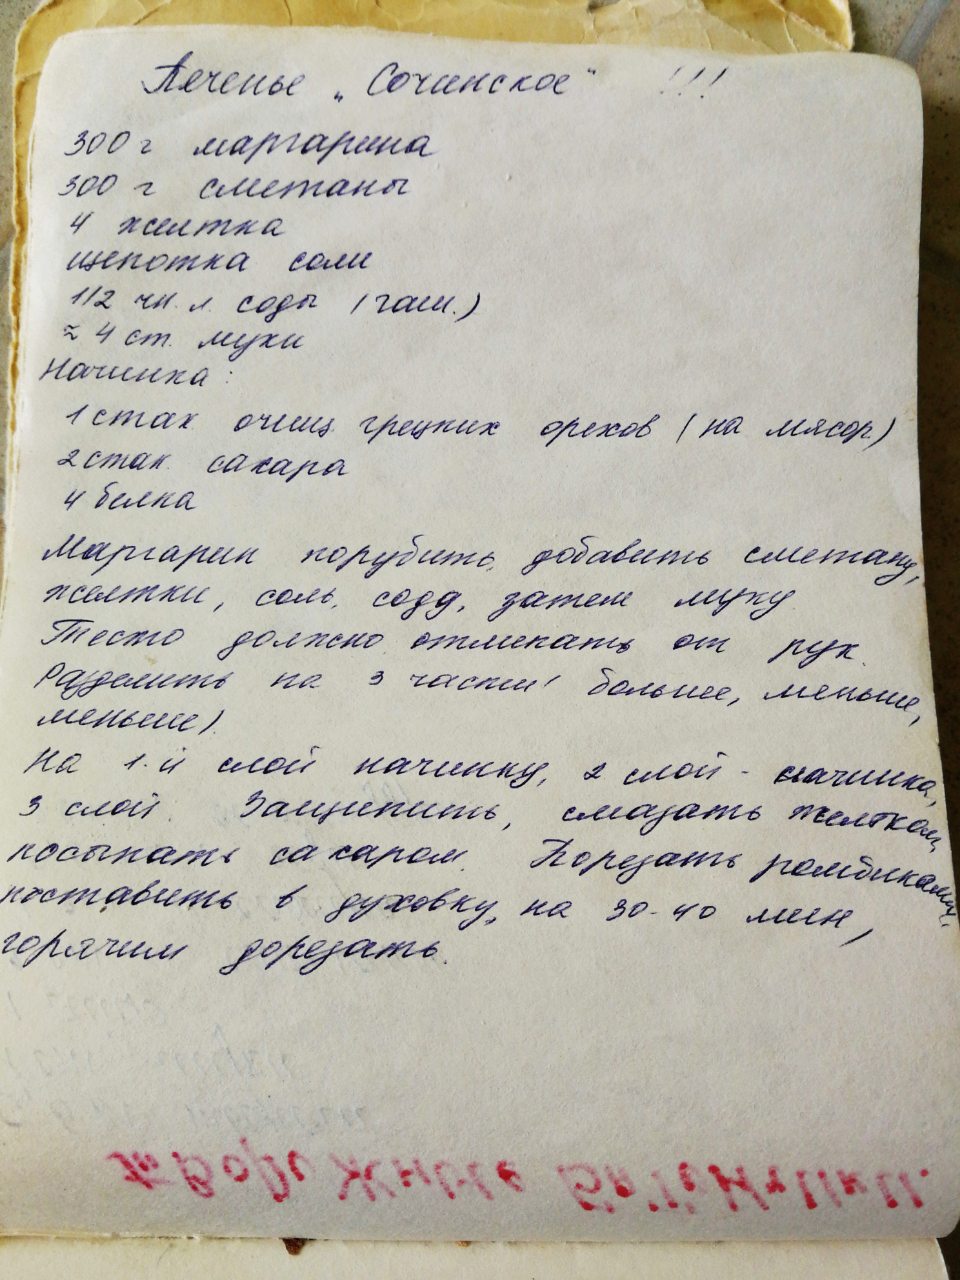 Печенье „Сочинское" !!!
300 г маргарина
300 г сметаны
4 желтка
щепотка соли
1/2 чн. л. соды (гаш.)
≈ 4 ст. муки
Начинка:
1 стак очищ грецких орехов (на мясор.)
2 стак. сахара
4 белка
Маргарин порубить, добавить сметану,
желтки, соль, соду, затем муку.
Тесто должно отлипать от рук.
Разделить на 3 части (больше, меньше,
меньше).
На 1-й слой начинку, 2 слой - начинка,
3 слой. Защипить, смазать желтком,
посыпать сахаром. Порезать ромбиками,
поставить в духовку, на 30-40 мин,
горячим дорезать.